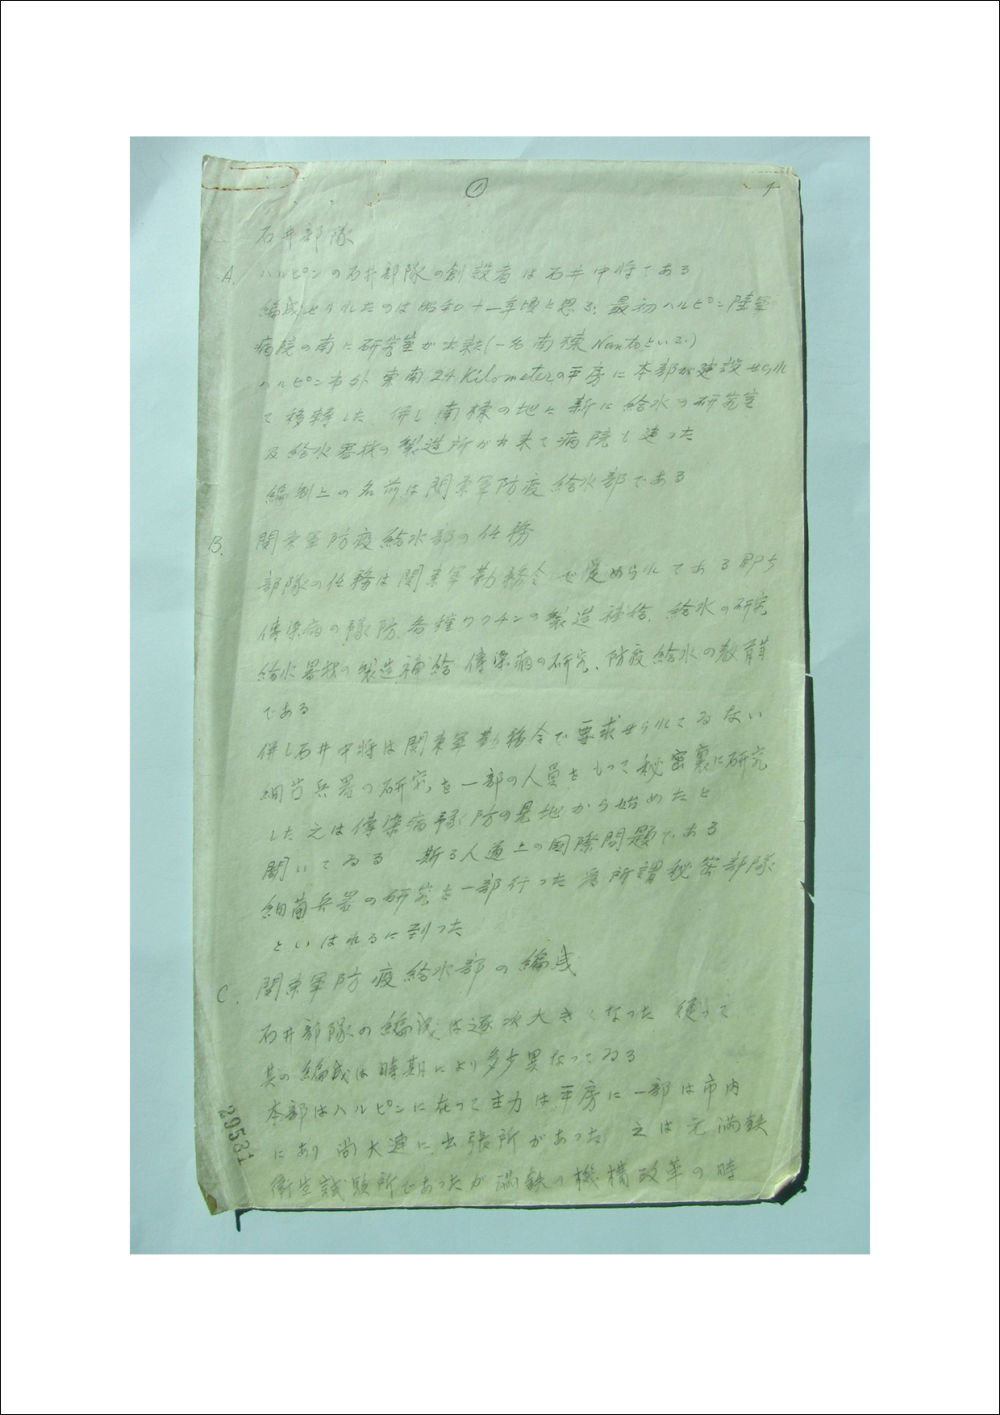 ①
石井部隊
A. ハルピンの石井部隊の創設者は石井中将である
編成せられたのは昭和十一年頃と思ふ、最初ハルピン陸軍
病院の南に研究室が出来た(一名南棟 Nantoといふ)
ハルピン市外東南24Kilometerの平房に本部が建設せられ
て移轉した 併し南棟の地に新に給水の研究室
及給水器材の製造所が出来て病院も建った
編制上の名前は関東軍防疫給水部である
B. 関東軍防疫給水部の任務
部隊の任務は関東軍勤務令で定められてある即ち
傳染病の豫防、各種ワクチンの製造補給、給水の研究
給水器材の製造、補給、傳染病の研究、防疫給水の教育等
である
併し石井中将は関東軍勤務令で要求せられてゐない
細菌兵器の研究を一部の人員をもって秘密裏に研究
した之は傳染病豫防の見地から始めたと
聞いてゐる 斯る人道上の國際問題である
細菌兵器の研究を一部行った為所謂秘密部隊
といはれるに到った
C. 関東軍防疫給水部の編成
石井部隊の編成は逐次大きくなった 従って
其の編成は時期により多少異なってゐる
本部はハルピンに在って主力は平房に一部は市内
にあり 尚大連に出張所があった 之は元満鉄
衛生試験所であったが満鉄の機構改革の時
29531